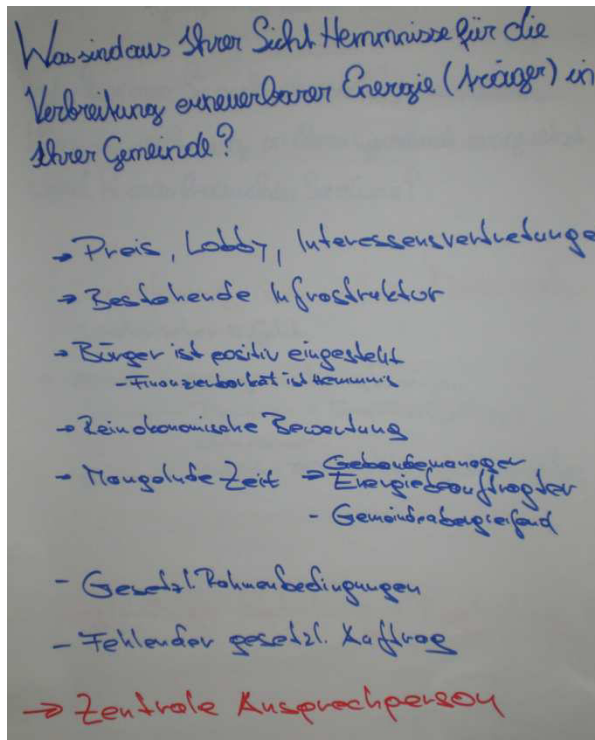 Was sind aus Ihrer Sicht Hemmnisse für die
Verbreitung erneuerbarer Energie (träger) in
Ihrer Gemeinde?
→ Preis, Lobby, Interessensvertretunge
→ Bestehende Infrastruktur
→ Bürger ist positiv eingestellt
- Finanzierbarkeit ist Hemmnis
→ Rein ökonomische Bewertung
- Mangelnde Zeit → Gebäudemanager
Energiebeauftragter
- Gemeindeübergreifend
- Gesetzl. Rahmenbedingungen
- Fehlender gesetzl. Auftrag
→ Zentrale Ansprechperson